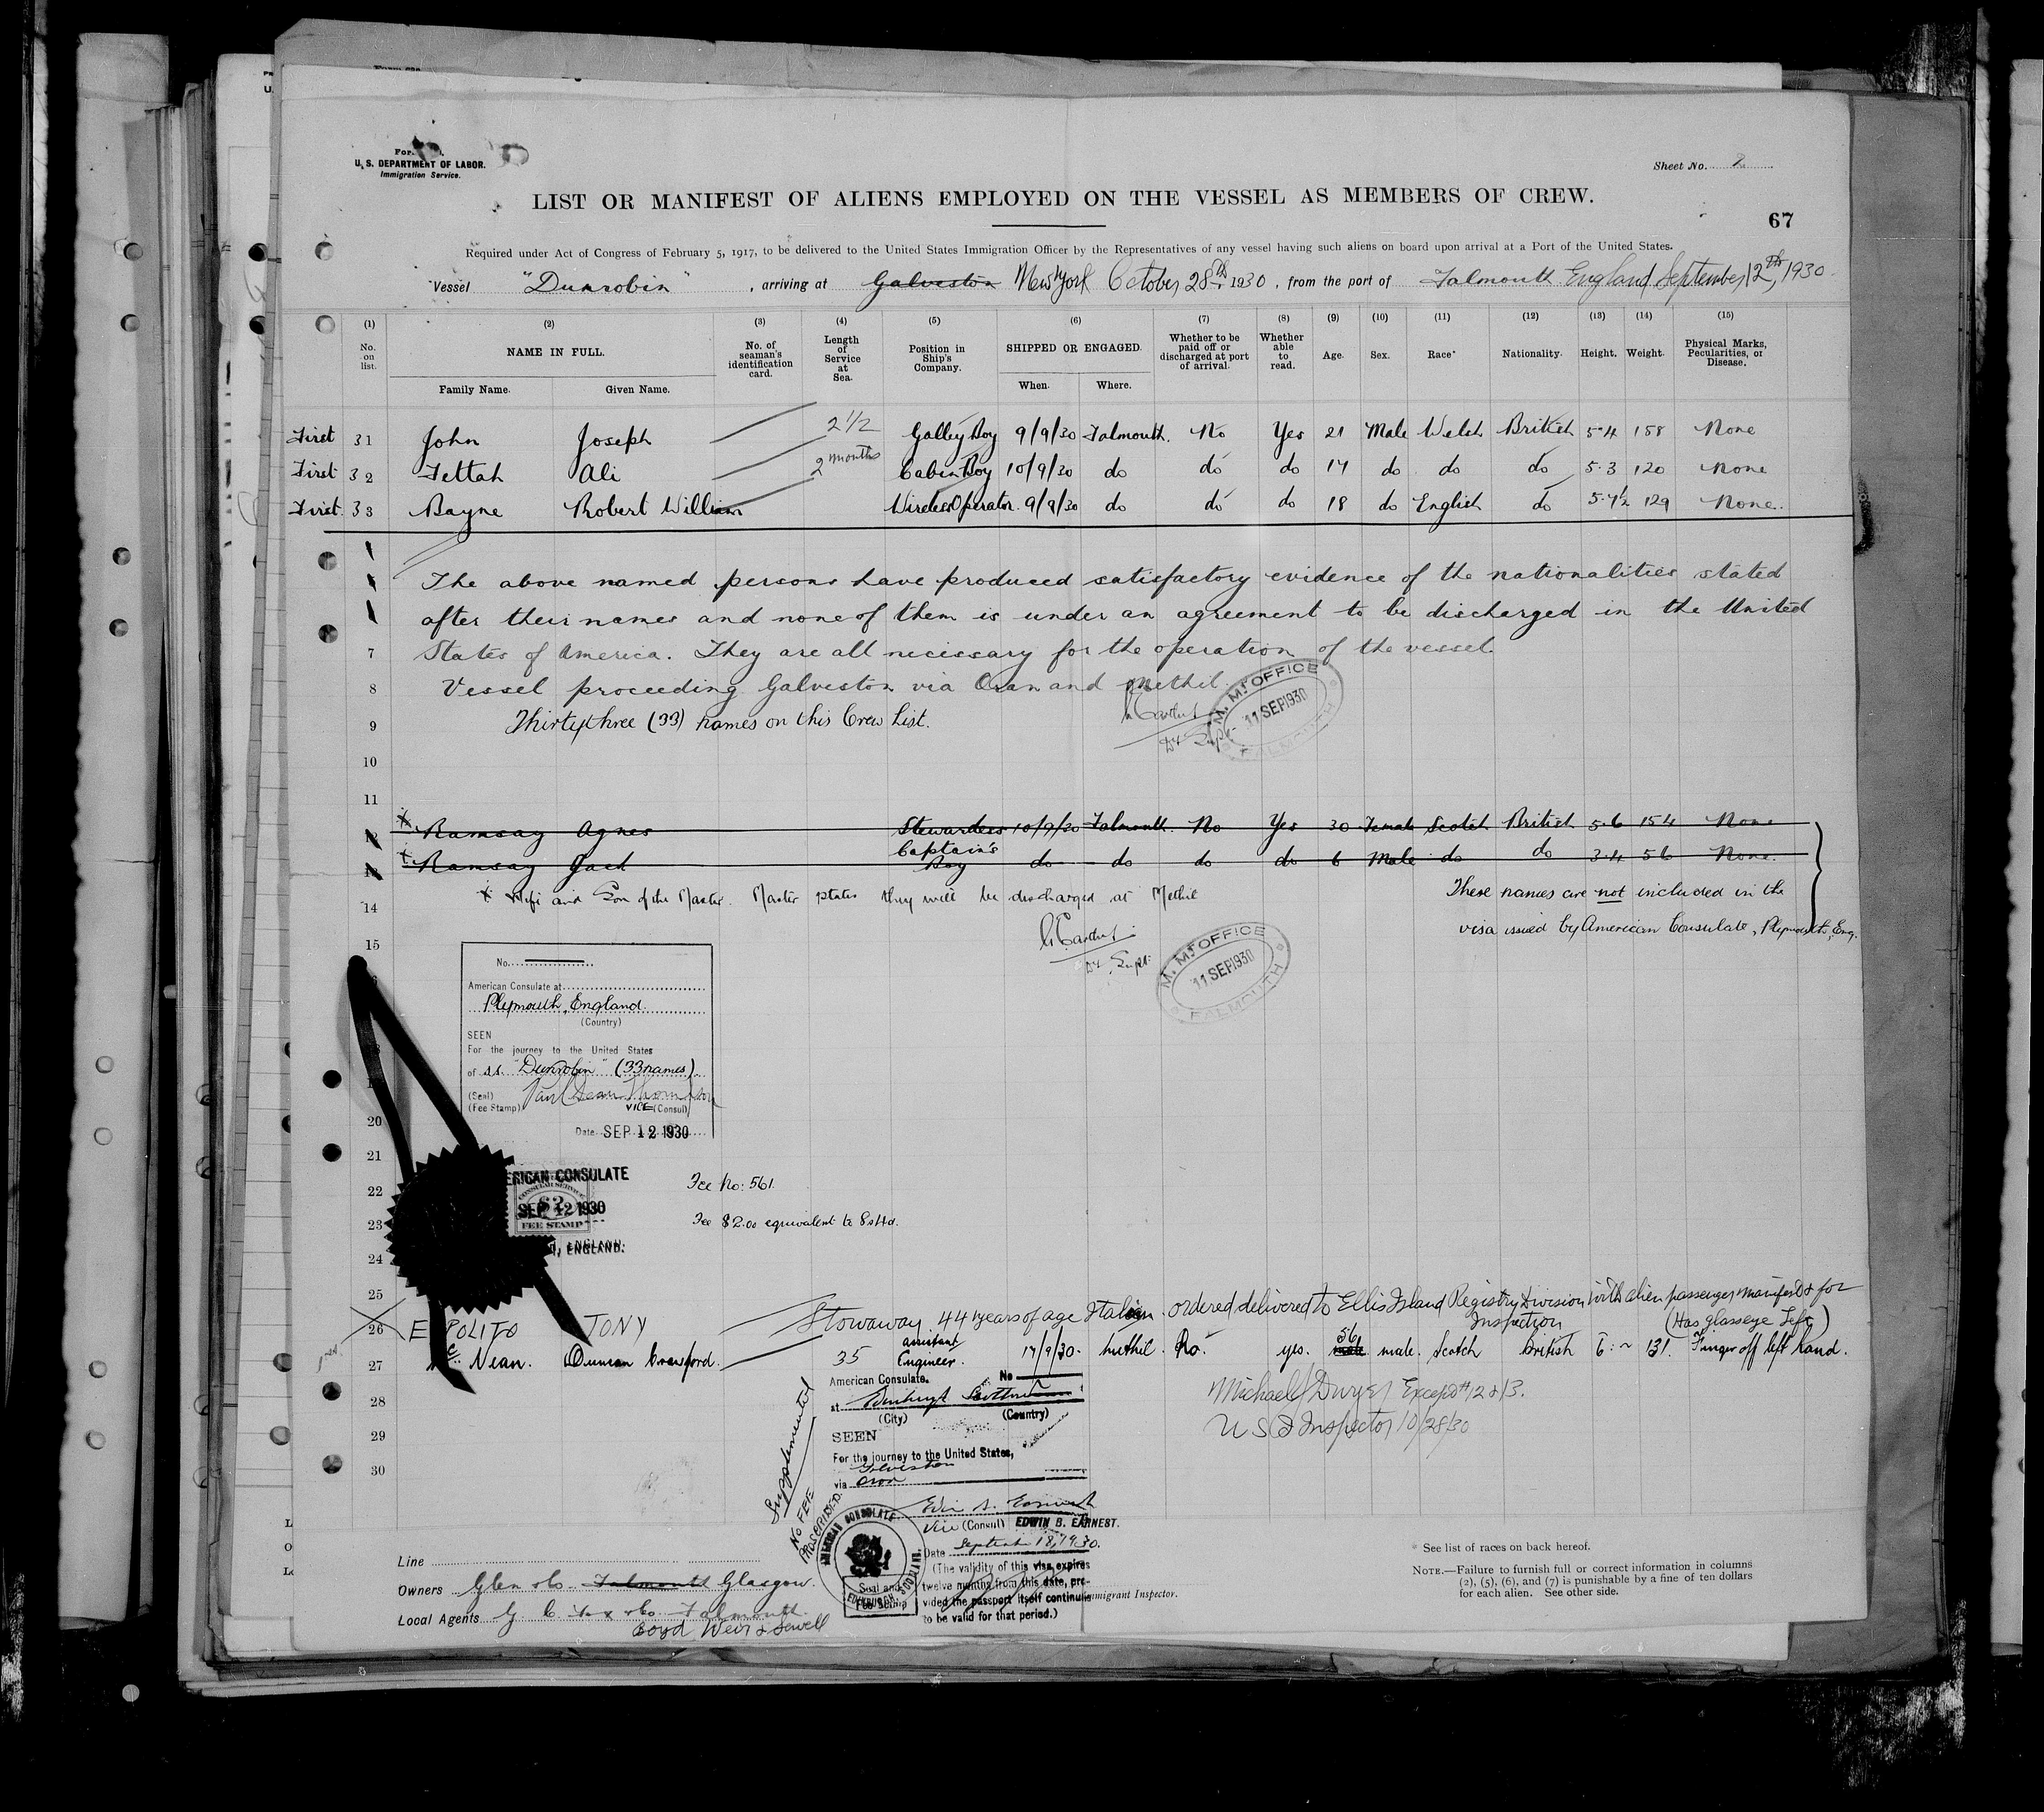 U. S. DEPARTMENT OF LABOR.
Immigration Service.
Sheet No. 2
LIST OR MANIFEST OF ALIENS EMPLOYED ON THE VESSEL AS MEMBERS OF CREW.
67
Required under Act of Congress of February 5, 1917, to be delivered to the United States Immigration Officer by the Representatives of any vessel having such aliens on board upon arrival at a Port of the United States.
Vessel "Dunrobin", arriving at Galveston New York October 28th 1930, from the port of Falmouth England September 12th, 1930
(1) (2) (3) (4) (5) (6) (7) (8) (9) (10) (11) (12) (13) (14) (15)
No. on list. NAME IN FULL. No. of seaman's identification card. Length of Service at Sea. Position in Ship's Company. SHIPPED OR ENGAGED. Whether to be paid off or discharged at port of arrival. Whether able to read. Age. Sex. Race* Nationality. Height. Weight. Physical Marks, Peculiarities, or Disease.
Family Name. Given Name. When. Where.
First 31 John Joseph 2 1/2 Galley Boy 9/9/30 Falmouth. No Yes 21 Male Welsh British 5·4 158 None
First 32 Fettah Ali 2 months Cabin Boy 10/9/30 do do do 17 do do do 5·3 120 None
First 33 Bayne Robert William Wireless Operator. 9/9/30 do do do 18 do English do 5·7½ 129 None.
The above named persons have produced satisfactory evidence of the nationalities stated
after their names and none of them is under an agreement to be discharged in the United
7 States of America. They are all necissary for the operation of the vessel.
8 Vessel proceeding Galveston via Oran and Methil.
9 Thirtythree (33) names on this Crew List.
M. M. OFFICE
11 SEP 1930
FALMOUTH
Dy Supt.
10
11
12 Ramsay Agnes Stewardess 10/9/30 Falmouth. No Yes 30 Female Scotch British 5·6 154 None
13 Ramsay Jack Captain's Boy do do do do 6 Male do do 3·4 56 None.
14 x Wife and Son of the Master. Master states they will be discharged at Methil
These names are not included in the
visa issued by American Consulate, Plymouth, Eng.
15
Dy Supt.
M. M. OFFICE
11 SEP 1930
FALMOUTH
No.
American Consulate at
Plymouth, England.
(Country)
SEEN
For the journey to the United States
of s.s. "Dunrobin" (33 names).
(Seal)
(Fee Stamp) VICE (Consul)
Date SEP 12 1930
20
21
22
23
24
25
AMERICAN CONSULATE
CONSULAR SERVICE
SEP 12 1930
FEE STAMP
ENGLAND.
Fee No: 561.
Fee $2.00 equivalent to 8s4d.
26 ESPOLITO TONY Stowaway 44 years of age Italian. ordered delivered to Ellis Island Registry Division with alien passenger manifest for
Inspection (Has glass eye Left)
27 Mc Nean. Duncan Crawford. 35 assistant Engineer. 17/9/30. Methil. No. yes. 56 male. Scotch British 131. Finger off left hand.
28
29
30
Michael J Dwyer Except #12 & 13.
U S I Inspector 10/28/30
Supplemental
NO FEE
PRESCRIBED.
American Consulate. No
at Edinburgh Scotland
(City) (Country)
SEEN
For the journey to the United States,
Galveston
via Oran
Edwin B. Earnest
Vice (Consul) EDWIN B. EARNEST.
Date September 18, 1930.
(The validity of this visa expires
twelve months from this date, pro-
vided the passport itself continues
to be valid for that period.)
AMERICAN CONSULATE
EDINBURGH, SCOTLAND.
Seal and
Fee Stamp
Immigrant Inspector.
Line
Owners Glen & Co. Falmouth Glasgow.
Local Agents G. C. Fox & Co. Falmouth.
Boyd Weir & Sewell
* See list of races on back hereof.
NOTE.—Failure to furnish full or correct information in columns
(2), (5), (6), and (7) is punishable by a fine of ten dollars
for each alien. See other side.